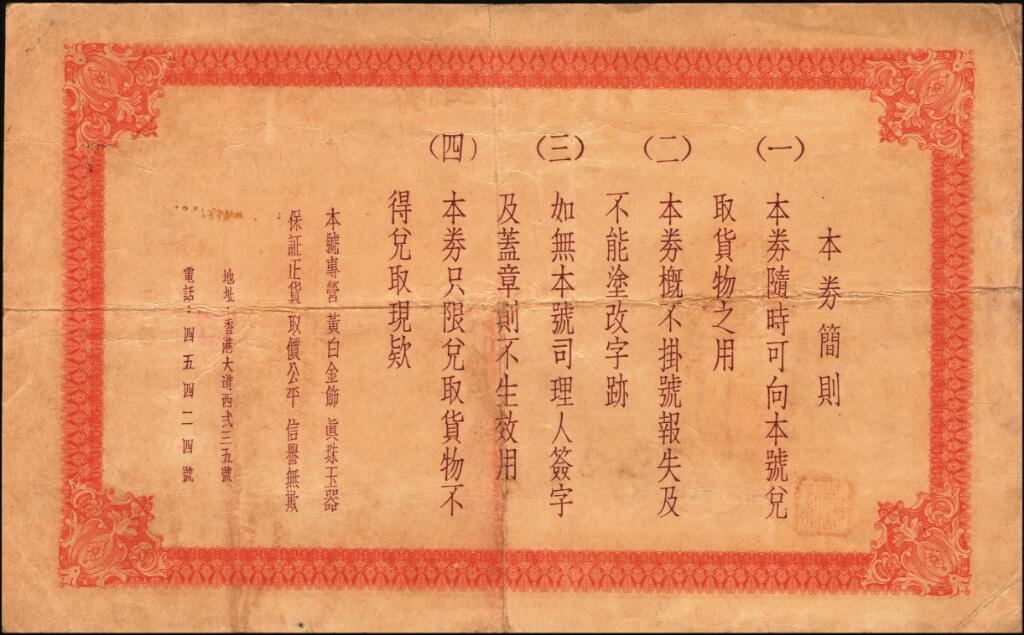 本券簡則
(一)本券隨時可向本號兌
取貨物之用
(二)本券概不掛號報失及
不能塗改字跡
(三)如無本號司理人簽字
及蓋章則不生效用
(四)本券只限兌取貨物不
得兌取現欵
本號專營 黃白金飾 眞珠玉器
保証正貨 取價公平 信譽無欺
地址：香港大道西弍三五號
電話：四五四二一四號